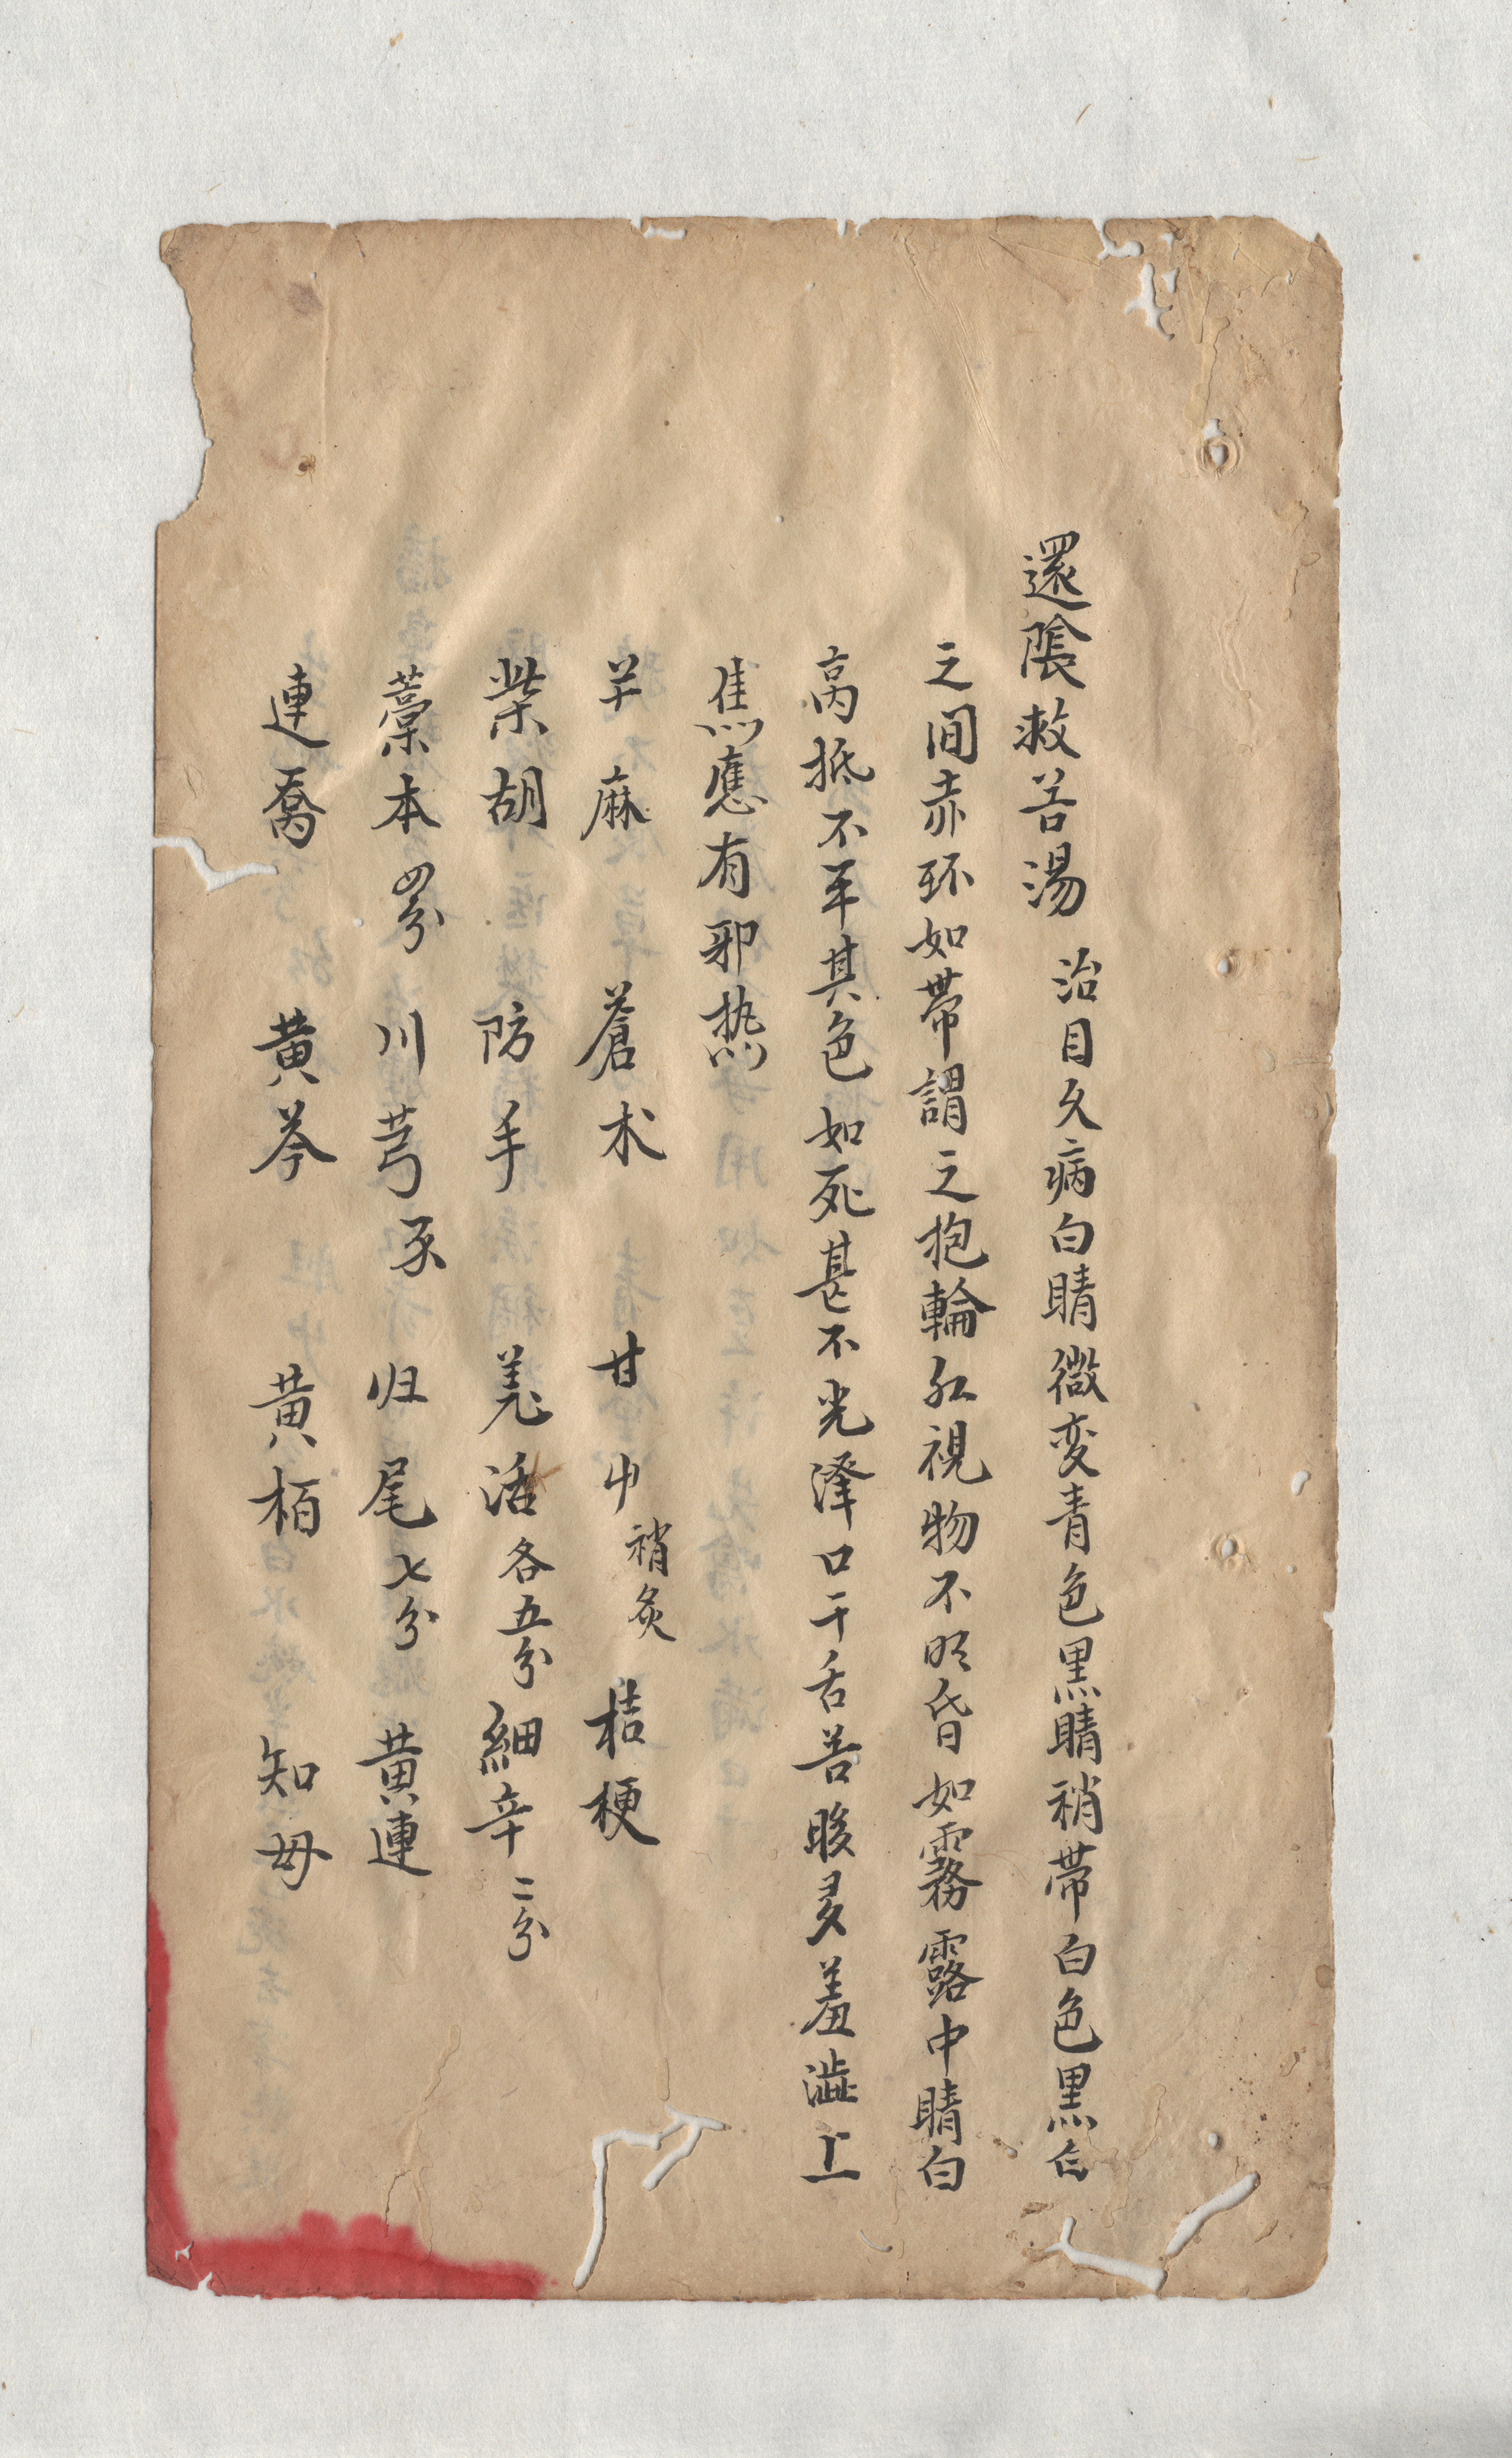 還陰救苦湯 治目久病白睛微変青色黒睛稍帯白色黒白
之间赤环如帯謂之抱輪红視物不明昏如霧露中睛白
高抵不平其色如死甚不光澤口干舌苦眵多羞澁上
焦應有邪热
羊麻 蒼术 甘中稍炙 桔梗
柴胡 防手 羗活各五分 細辛二分
藁本四分 川芎 归尾七分 黄連
連喬 黄芩 黄栢 知母